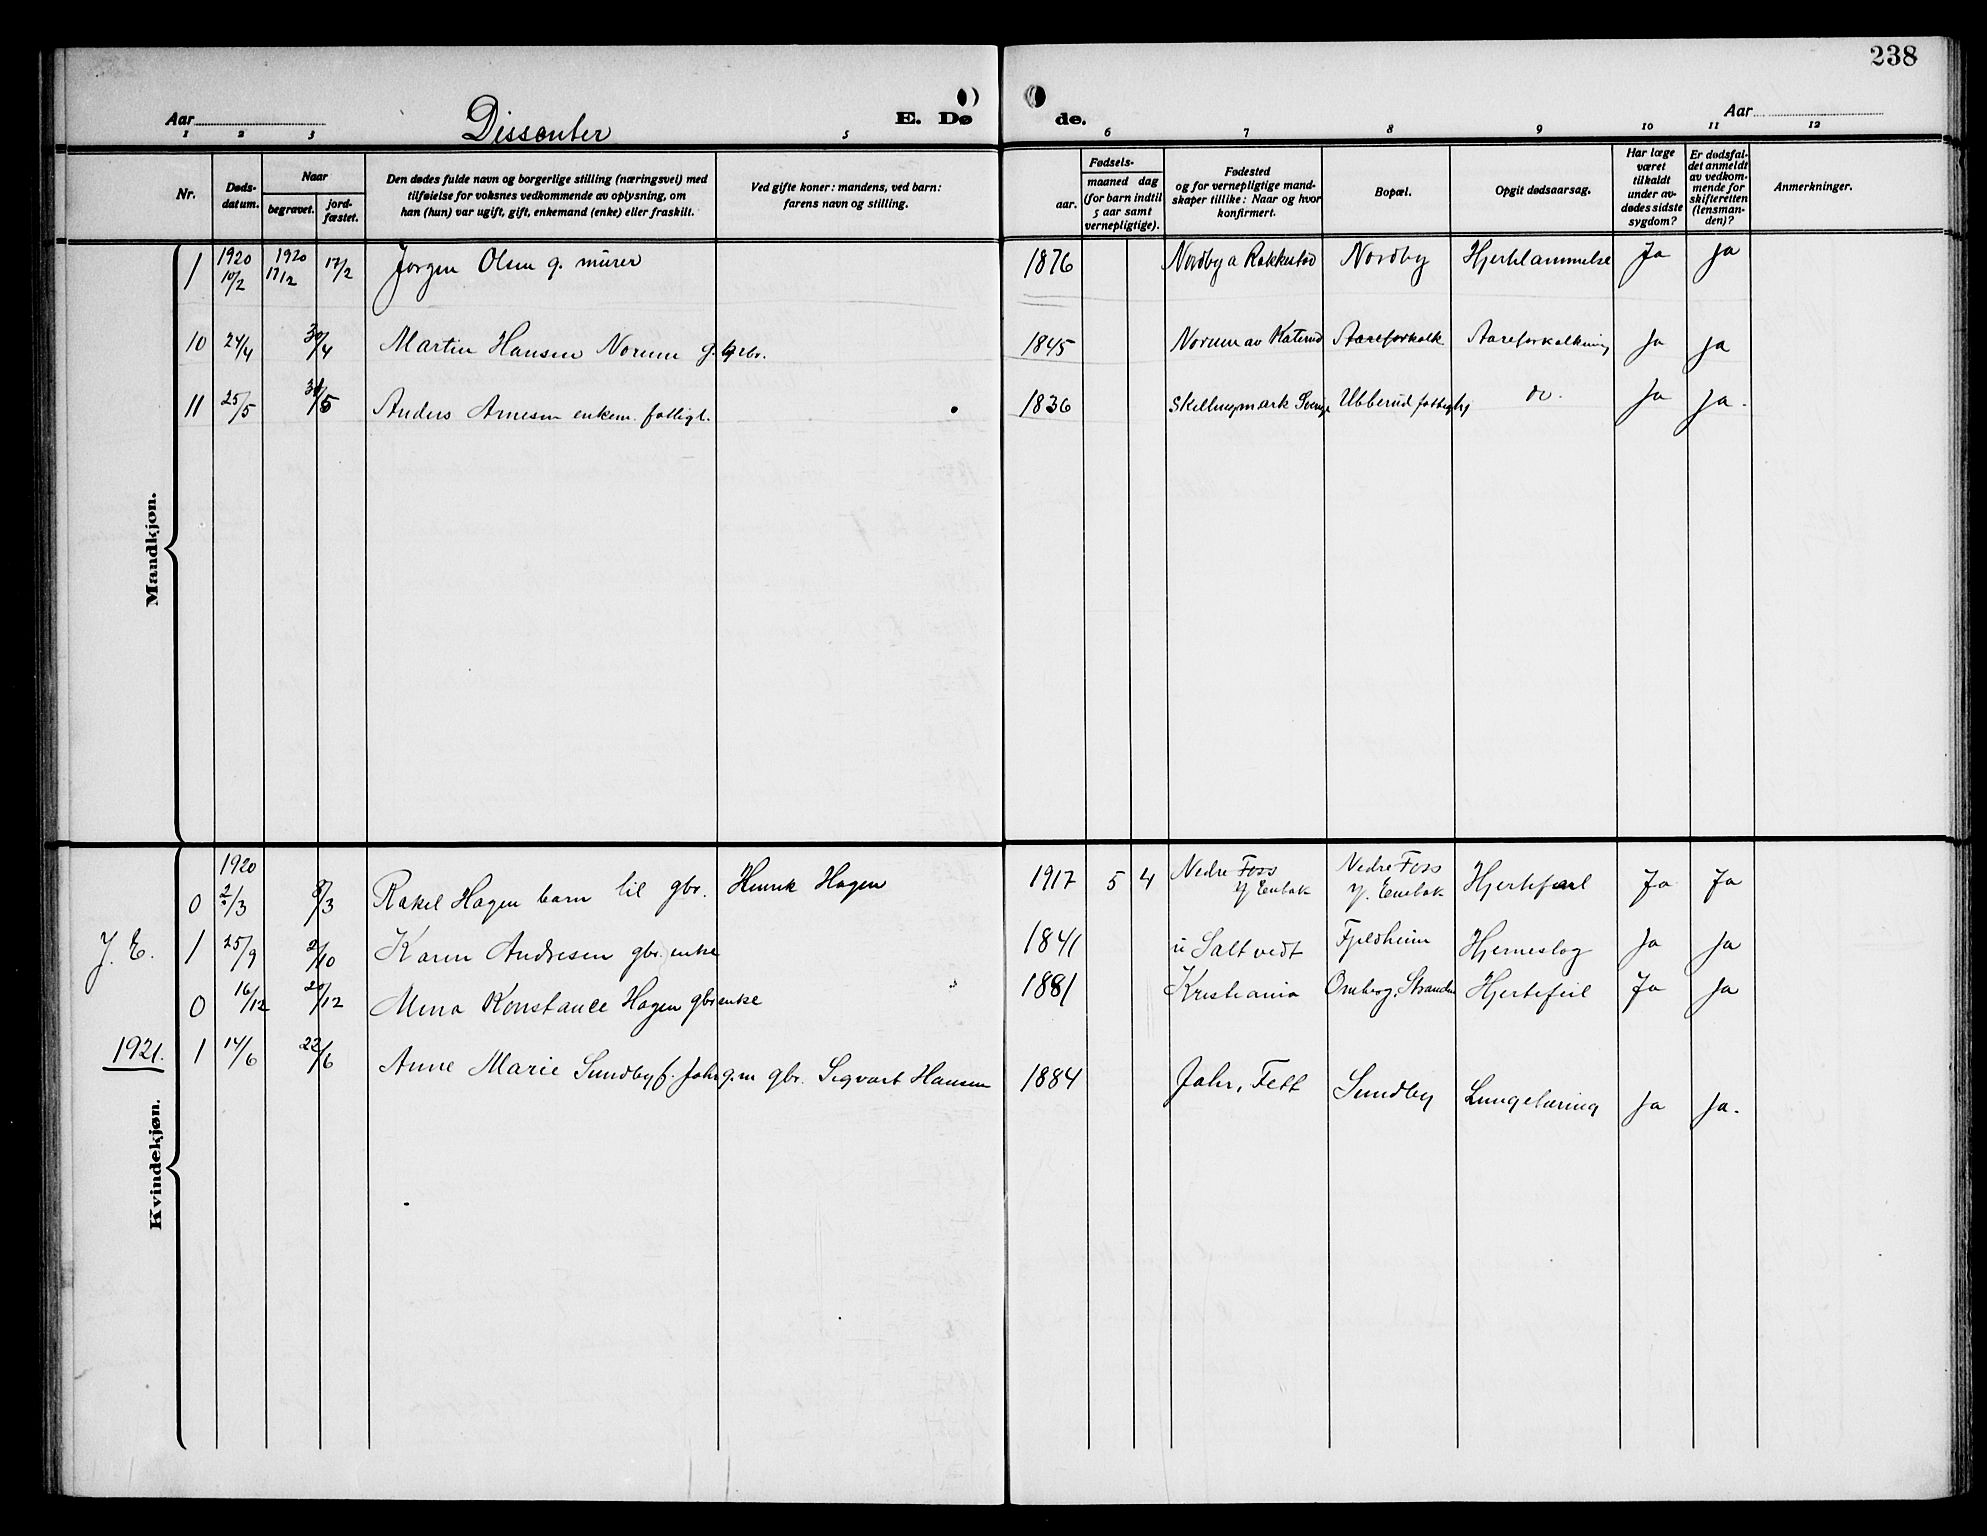 238
Aar
Dissenter
E. Dø
de.
Aar
1 2 3 5 6 7 8 9 10 11 12
Nr.
Døds-
datum.
Naar
begravet.
jord-
fæstet.
Den dødes fulde navn og borgerlige stilling (næringsvei) med
tilføielse for voksnes vedkommende av oplysning, om
han (hun) var ugift, gift, enkemand (enke) eller fraskilt.
Ved gifte koner: mandens, ved barn:
farens navn og stilling.
aar.
Fødsels-
maaned dag
(for barn indtil
5 aar samt
vernepligtige).
Fødested
og for vernepligtige mand-
skaper tillike: Naar og hvor
konfirmert.
Bopæl.
Opgit dødsaarsag.
Har læge
været
tilkaldt
under av-
dødes sidste
sygdom?
Er dødsfal-
det anmeldt
av vedkom-
mende for
skifteretten
(lensman-
den)?
Anmerkninger.
Mandkjøn.
1 1920 10/2 1920 17/2 17/2 Jørgen Olsen g. murer 1876 Nordby a Rakkestad Nordby Hjertelammelse Ja Ja
10 24/4 30/4 Martin Hansen Norum g. gbr. 1845 Norum av Aareforkalk Aareforkalkning Ja Ja
11 25/5 /5 Anders Arnesen enkem. fattigl. 1836 Skillingmark Sverige Ubberud fattigby do. Ja Ja.
Kvindekjøn.
0 1920 2/3 8/3 Rakel Hagen barn til gbr. Henrik Hagen 1917 5 4 Nedre Foss Y Enebak Nedre Foss Y. Enebak Hjertefeil Ja Ja
Y. E. 1 25/9 2/10 Karen Andresen gbr. enke 1841 Saltvedt Fjeldheim Hjerneslag Ja Ja
0 16/12 20/12 Mina Konstance Hagen gbr enke 1881 Kristiania Hjertefeil Ja Ja
1921. 1 14/6 22/6 Anne Marie Sundby f. Jahr g.m gbr. Sigvart Hansen 1884 Jahr, Fett Sundby Lungetæring Ja Ja.